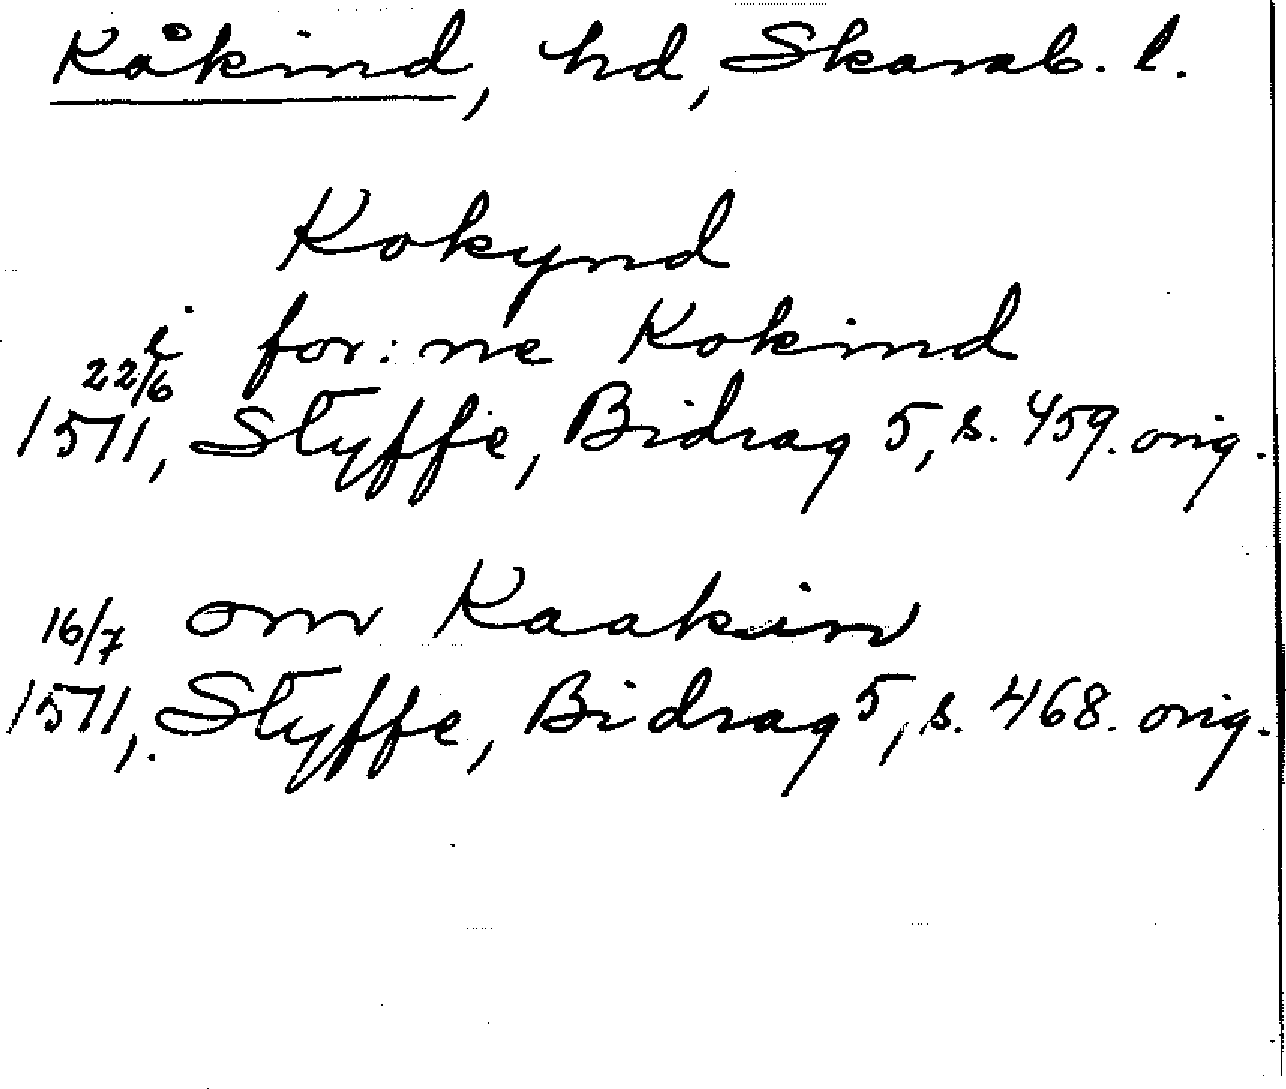 Kåkind, hd, Skarab. l.
Kokynd
i for: ne Kokind
22/6
1511, Styffe, Bidrag 5, s. 459. orig.
16/7 om Kaakin
1511,. Styffe, Bidrag 5, s. 468. orig.